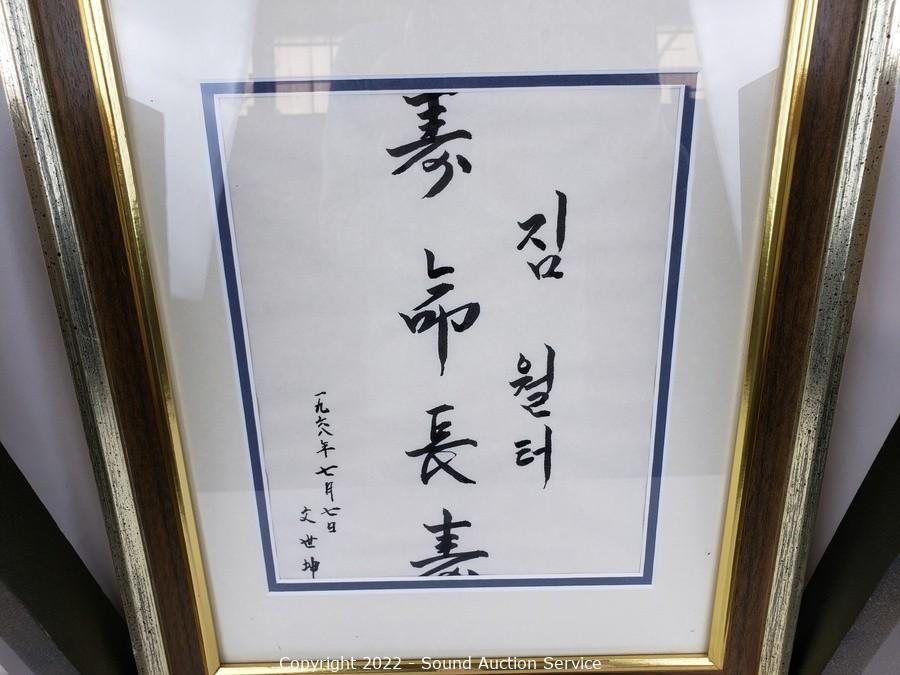 짐 월터
壽命長壽
一九六八年七月七日
文世坤
Copyright 2022 - Sound Auction Service